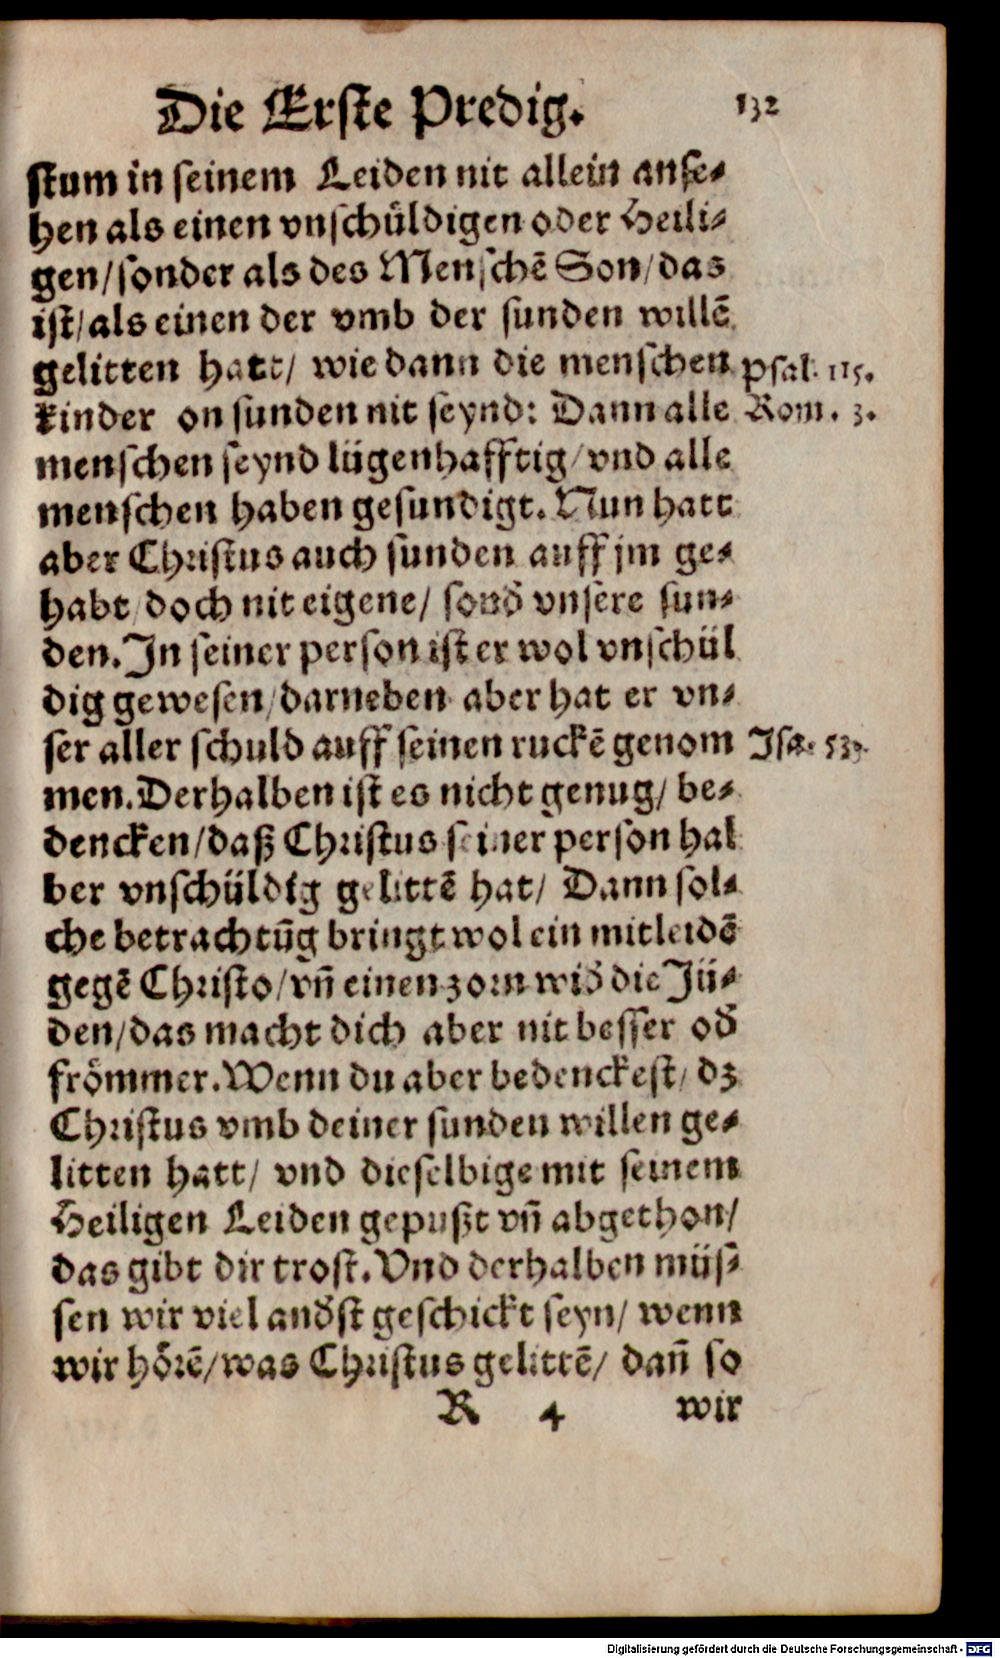 Die Erste Predig. 132
stum in seinem Leiden nit allein anse⸗
hen als einen vnschüldigen oder Heili⸗
gen/sonder als des Menschē Son/das
ist/als einen der vmb der sunden willē
gelitten hatt/ wie dann die menschen Psal. 115.
kinder on sunden nit seynd: Dann alle Rom. 3.
menschen seynd lügenhafftig/vnd alle
menschen haben gesundigt. Nun hatt
aber Christus auch sunden auff jm ge⸗
habt/doch nit eigene/ sond̄ vnsere sun⸗
den. In seiner person ist er wol vnschül
dig gewesen/darneben aber hat er vn⸗
ser aller schuld auff seinen ruckē genom Isa. 53.
men. Derhalben ist es nicht genug/ be⸗
dencken/daß Christus seiner person hal
ber vnschüldig gelittē hat/ Dann sol⸗
che betrachtūg bringt wol ein mitleidē
gegē Christo/vñ einen zorn wid̄ die Jü⸗
den/das macht dich aber nit besser od̄
frömmer. Wenn du aber bedenckest/ dz
Christus vmb deiner sunden willen ge⸗
litten hatt/ vnd dieselbige mit seinem
Heiligen Leiden gepußt vñ abgethon/
das gibt dir trost. Vnd derhalben müs⸗
sen wir viel and̄st geschickt seyn/ wenn
wir hörē/was Christus gelittē/ dañ so
R 4 wir
Digitalisierung gefördert durch die Deutsche Forschungsgemeinschaft - DFG